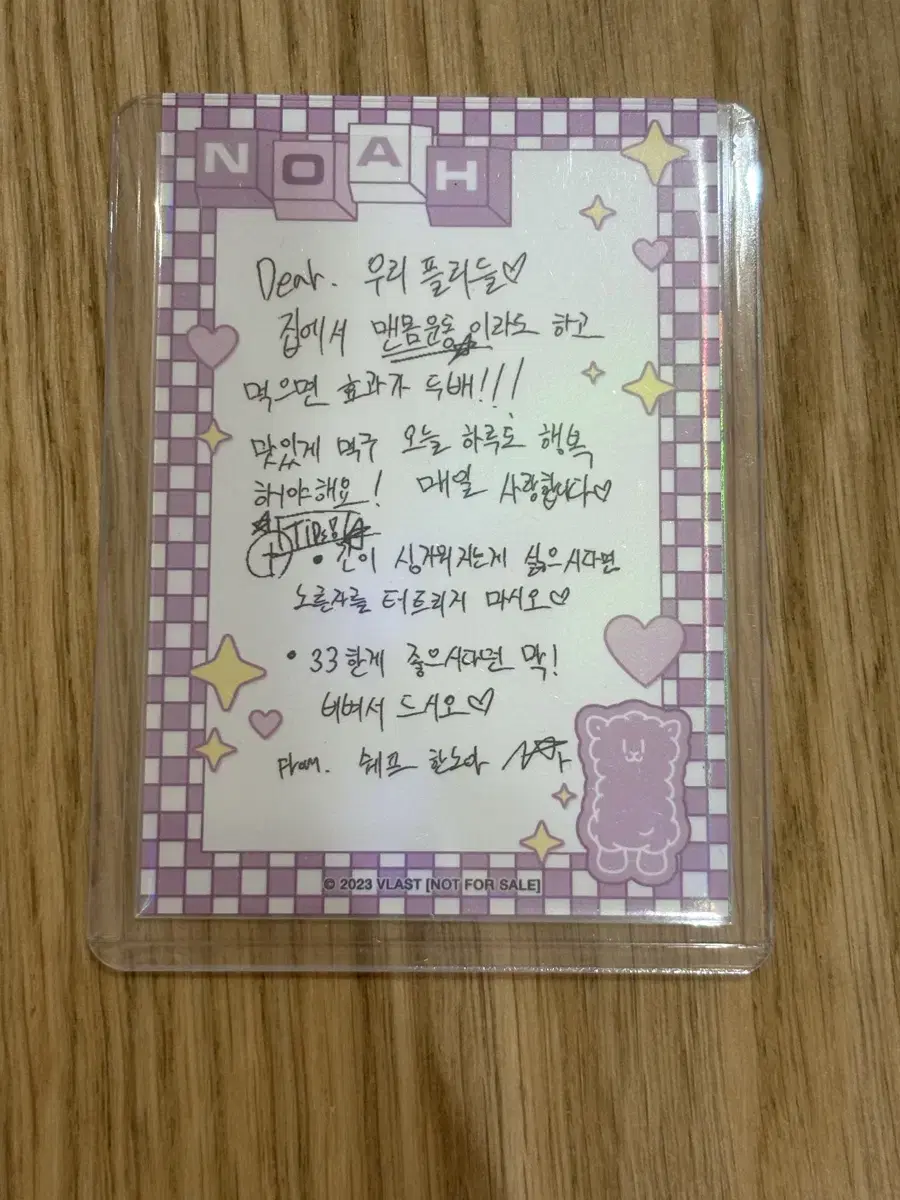 NOAH
Dear. 우리 플리들♡
집에서 맨몸운동이라도 하고
먹으면 효과가 두배!!!
맛있게 먹구 오늘 하루도 행복
해야해요! 매일 사랑합니다♡
• 간이 싱거워지는게 싫으시다면
노른자를 터트리지 마시오♡
• 33한게 좋으시다면 막!
비벼서 드시오♡
From. 쉐프 한노아
© 2023 VLAST [NOT FOR SALE]